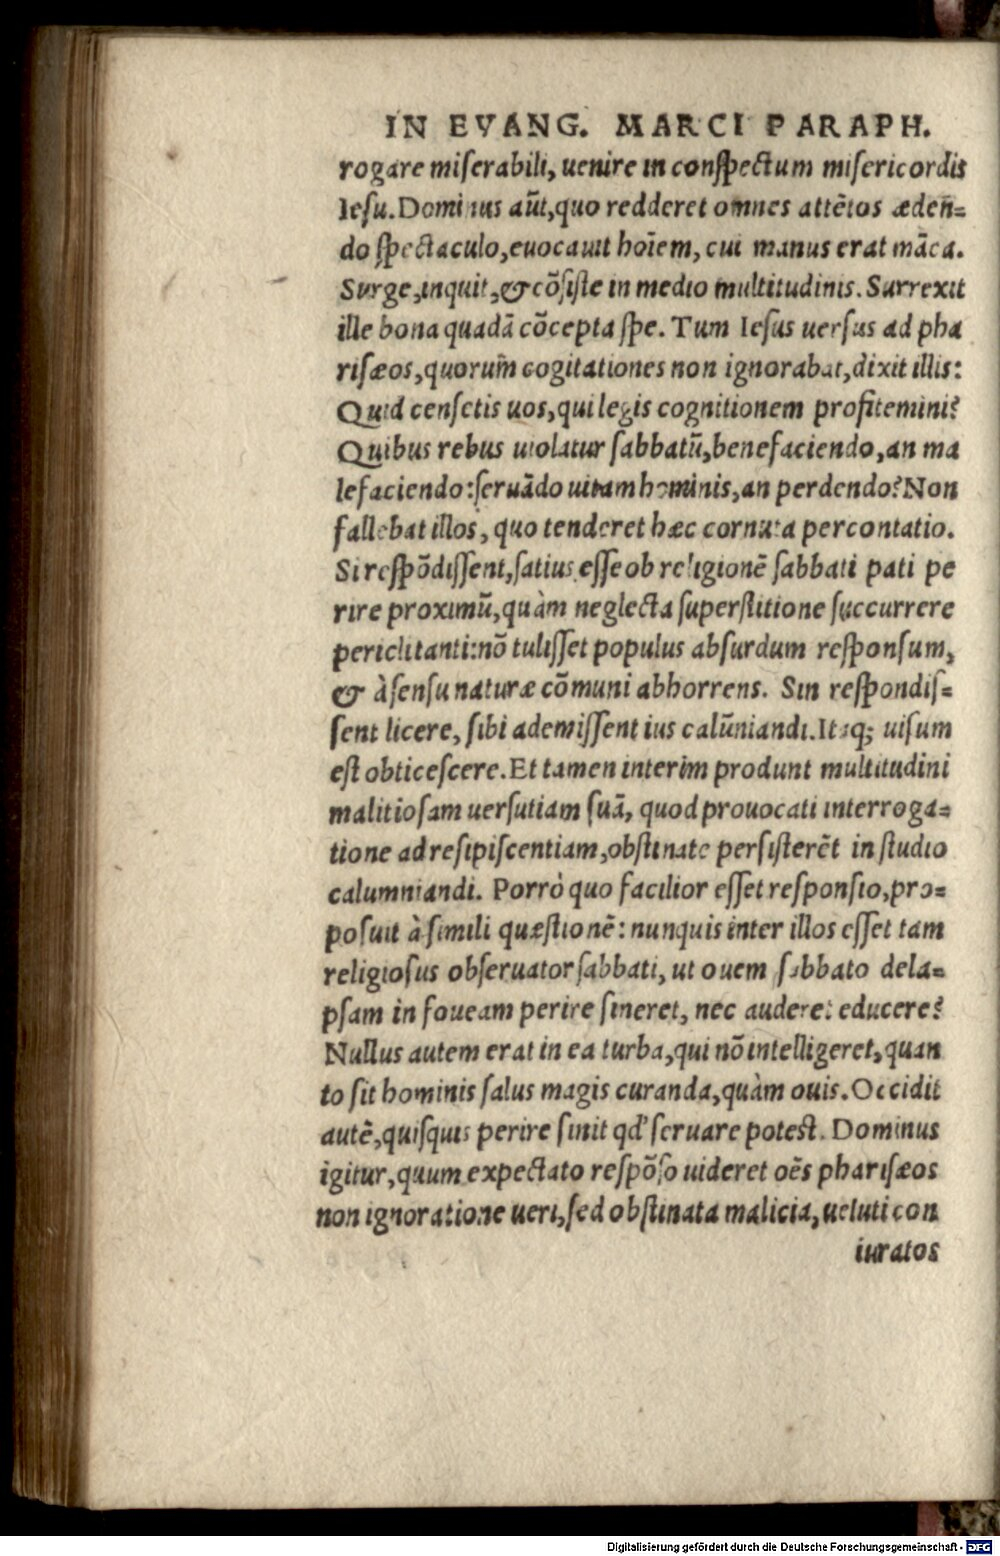 IN EVANG. MARCI PARAPH.
rogare miserabili, uenire in conspectum misericordis
Iesu. Dominus aūt, quo redderet omnes attētos ædeñ=
do spectaculo, euocauit hoīem, cui manus erat māca.
Surge, inquit, & cōsiste in medio multitudinis. Surrexit
ille bona quadā cōcepta spe. Tum Iesus uersus ad pha
risæos, quorum̄ cogitationes non ignorabat, dixit illis:
Quid censetis uos, qui legis cognitionem profitemini?
Quibus rebus uiolatur sabbatū, benefaciendo, an ma
lefaciendo: seruādo uitam hominis, an perdendo? Non
fallebat illos, quo tenderet hæc cornuta percontatio.
Si respōdissent, satius esse ob religionē sabbati pati pe
rire proximū, quàm neglecta superstitione succurrere
periclitanti: nō tulisset populus absurdum responsum,
& à sensu naturæ cōmuni abhorrens. Sin respondis=
sent licere, sibi ademissent ius calūniandi. Itaq; uisum
est obticescere. Et tamen interim produnt multitudini
malitiosam uersutiam suā, quod prouocati interroga=
tione ad resipiscentiam, obstinate persisterēt in studio
calumniandi. Porrò quo facilior esset responsio, pro=
posuit à simili quæstionē: nunquis inter illos esset tam
religiosus obseruator sabbati, ut ouem sabbato dela=
psam in foueam perire sineret, nec auderet educere?
Nullus autem erat in ea turba, qui nō intelligeret, quan
to sit hominis salus magis curanda, quàm ouis. Occidit
autē, quisquis perire sinit qd' seruare potest. Dominus
igitur, quum expectato respōso uideret oēs pharisæos
non ignoratione ueri, sed obstinata malicia, ueluti con
iuratos
Digitalisierung gefördert durch die Deutsche Forschungsgemeinschaft - DFG